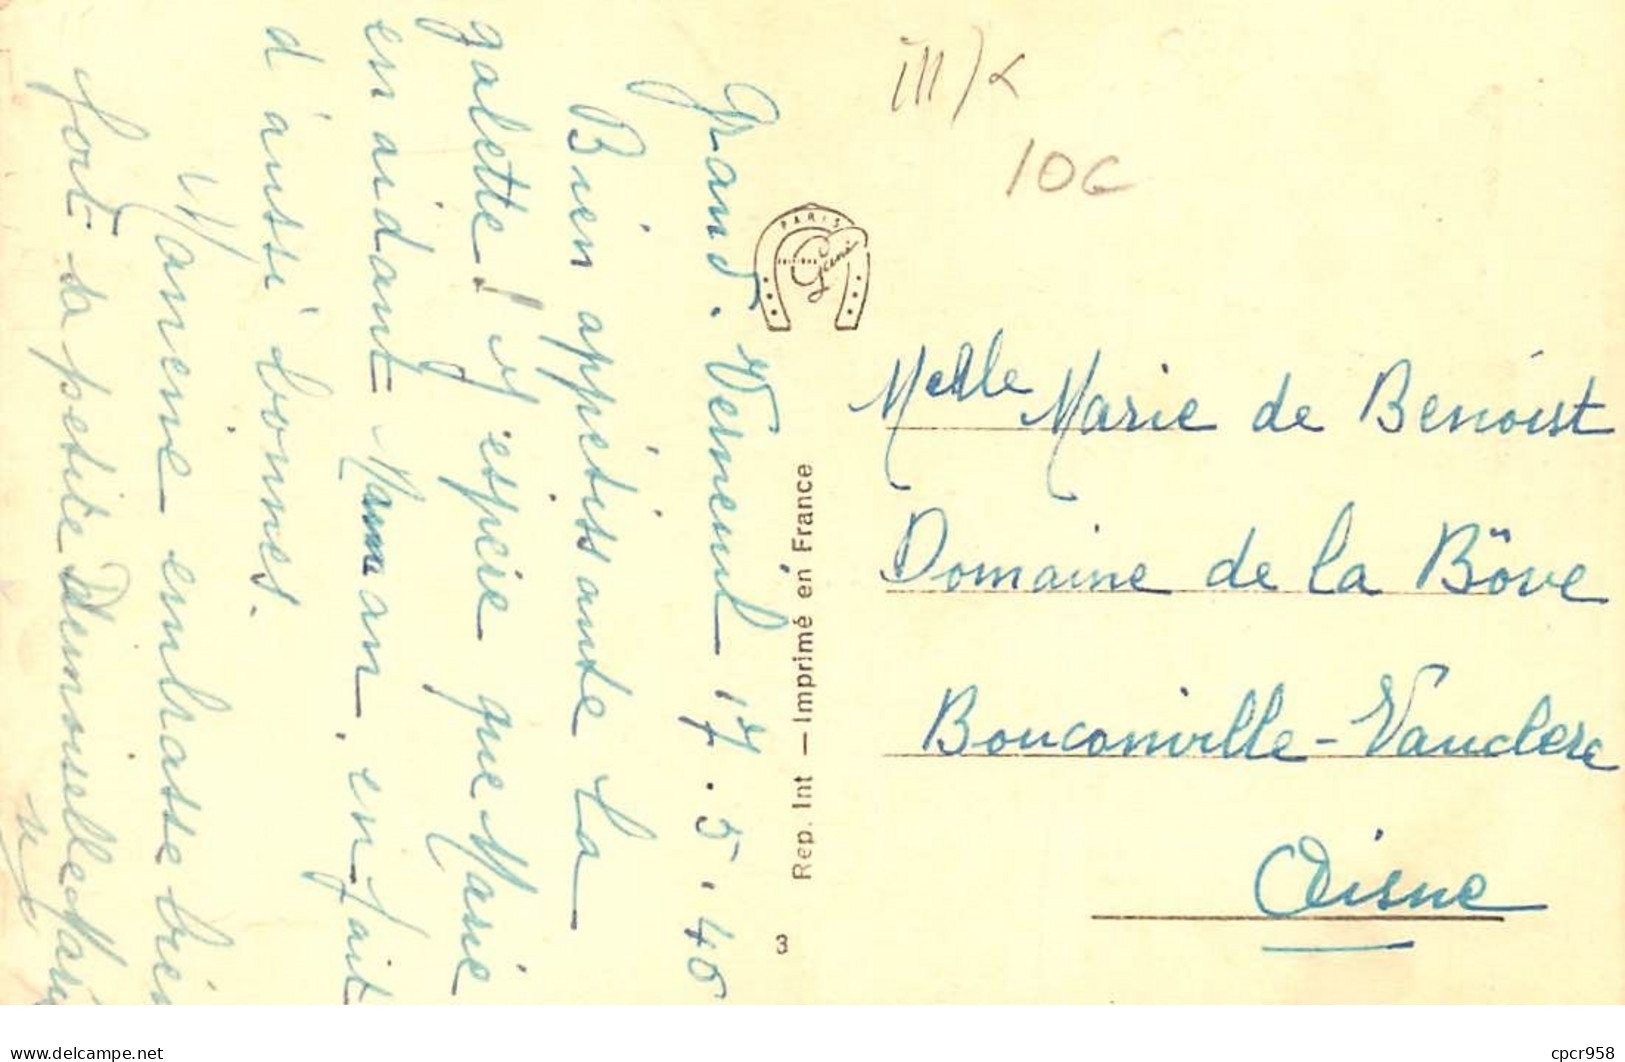 Grand-Verneuil 17.5.40
Bien appétissante la
galette ! j'espère que Marie
en aidant Maman, en fait
d'aussi bonnes.
Marraine embrasse bien
fort sa petite Demoiselle Marie
PARIS
EDITIONS
Gerini
Rep. Int — Imprimé en France
3
10€
Melle Marie de Benoist
Domaine de la Bôve
Bouconville-Vauclere
Aisne
delcampe.net
cpcr958